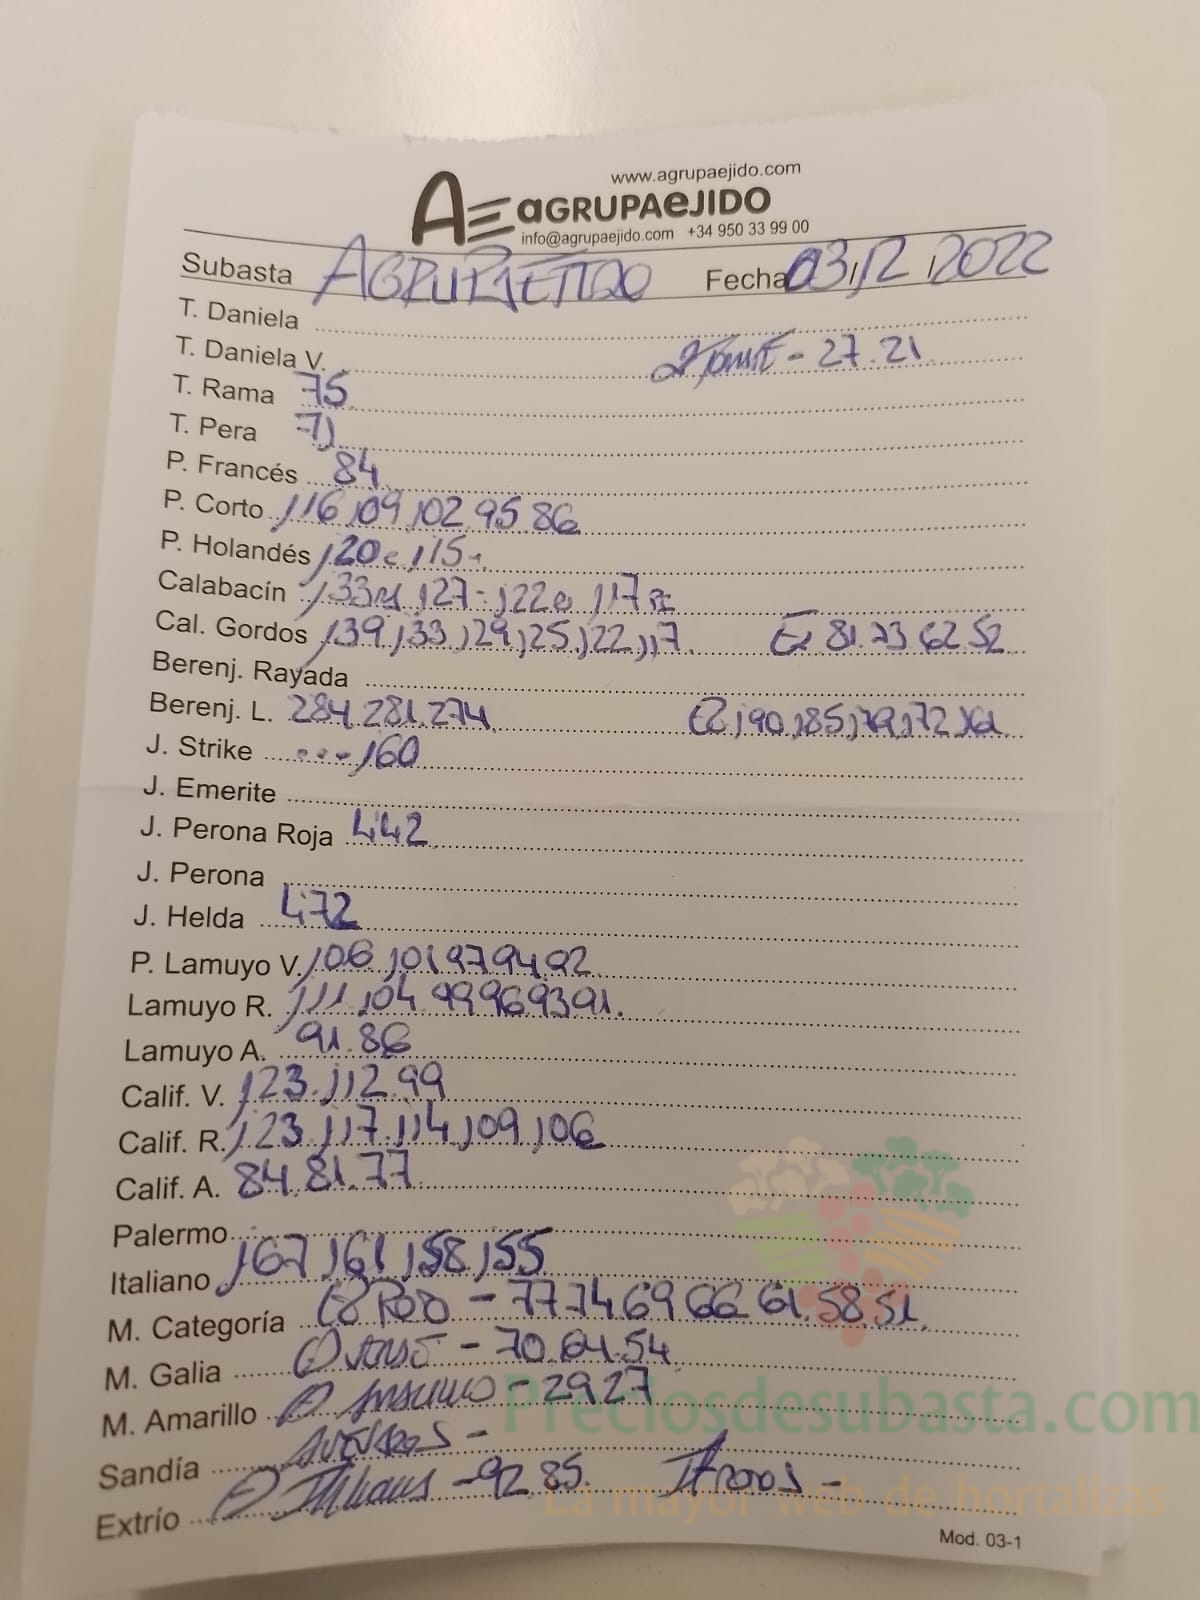 www.agrupaejido.com
AE aGRUPAeJIDO
info@agrupaejido.com +34 950 33 99 00
Subasta AGRUPAEJIDO Fecha 03/12/2022
T. Daniela
T. Daniela V. - 27.21
T. Rama 75
T. Pera 71
P. Francés 84
P. Corto 116,109,102 95 86
P. Holandés 120 115
Calabacín 133 127- 122 117
Cal. Gordos 139,133,129,125,122,117 81.73 62 52
Berenj. Rayada
Berenj. L. 284.281.274 190,185,179,172,161
J. Strike 160
J. Emerite
J. Perona Roja 442
J. Perona
J. Helda 472
P. Lamuyo V. 106 101 97 94 92
Lamuyo R. 111 104 99 96 93 91.
Lamuyo A. 91.86
Calif. V. 123.112.99
Calif. R. 123.117.114,109,106
Calif. A. 84.81.77
Palermo
Italiano 167,161,158,155
M. Categoría ROJO - 77.74 69 66 61.58.51.
M. Galia - 70.64.54
M. Amarillo AMARILLO - 29 27
Sandía
Extrío ITALIANOS - 92.85.
Mod. 03-1
Preciosdesubasta.com
La mayor web de hortalizas